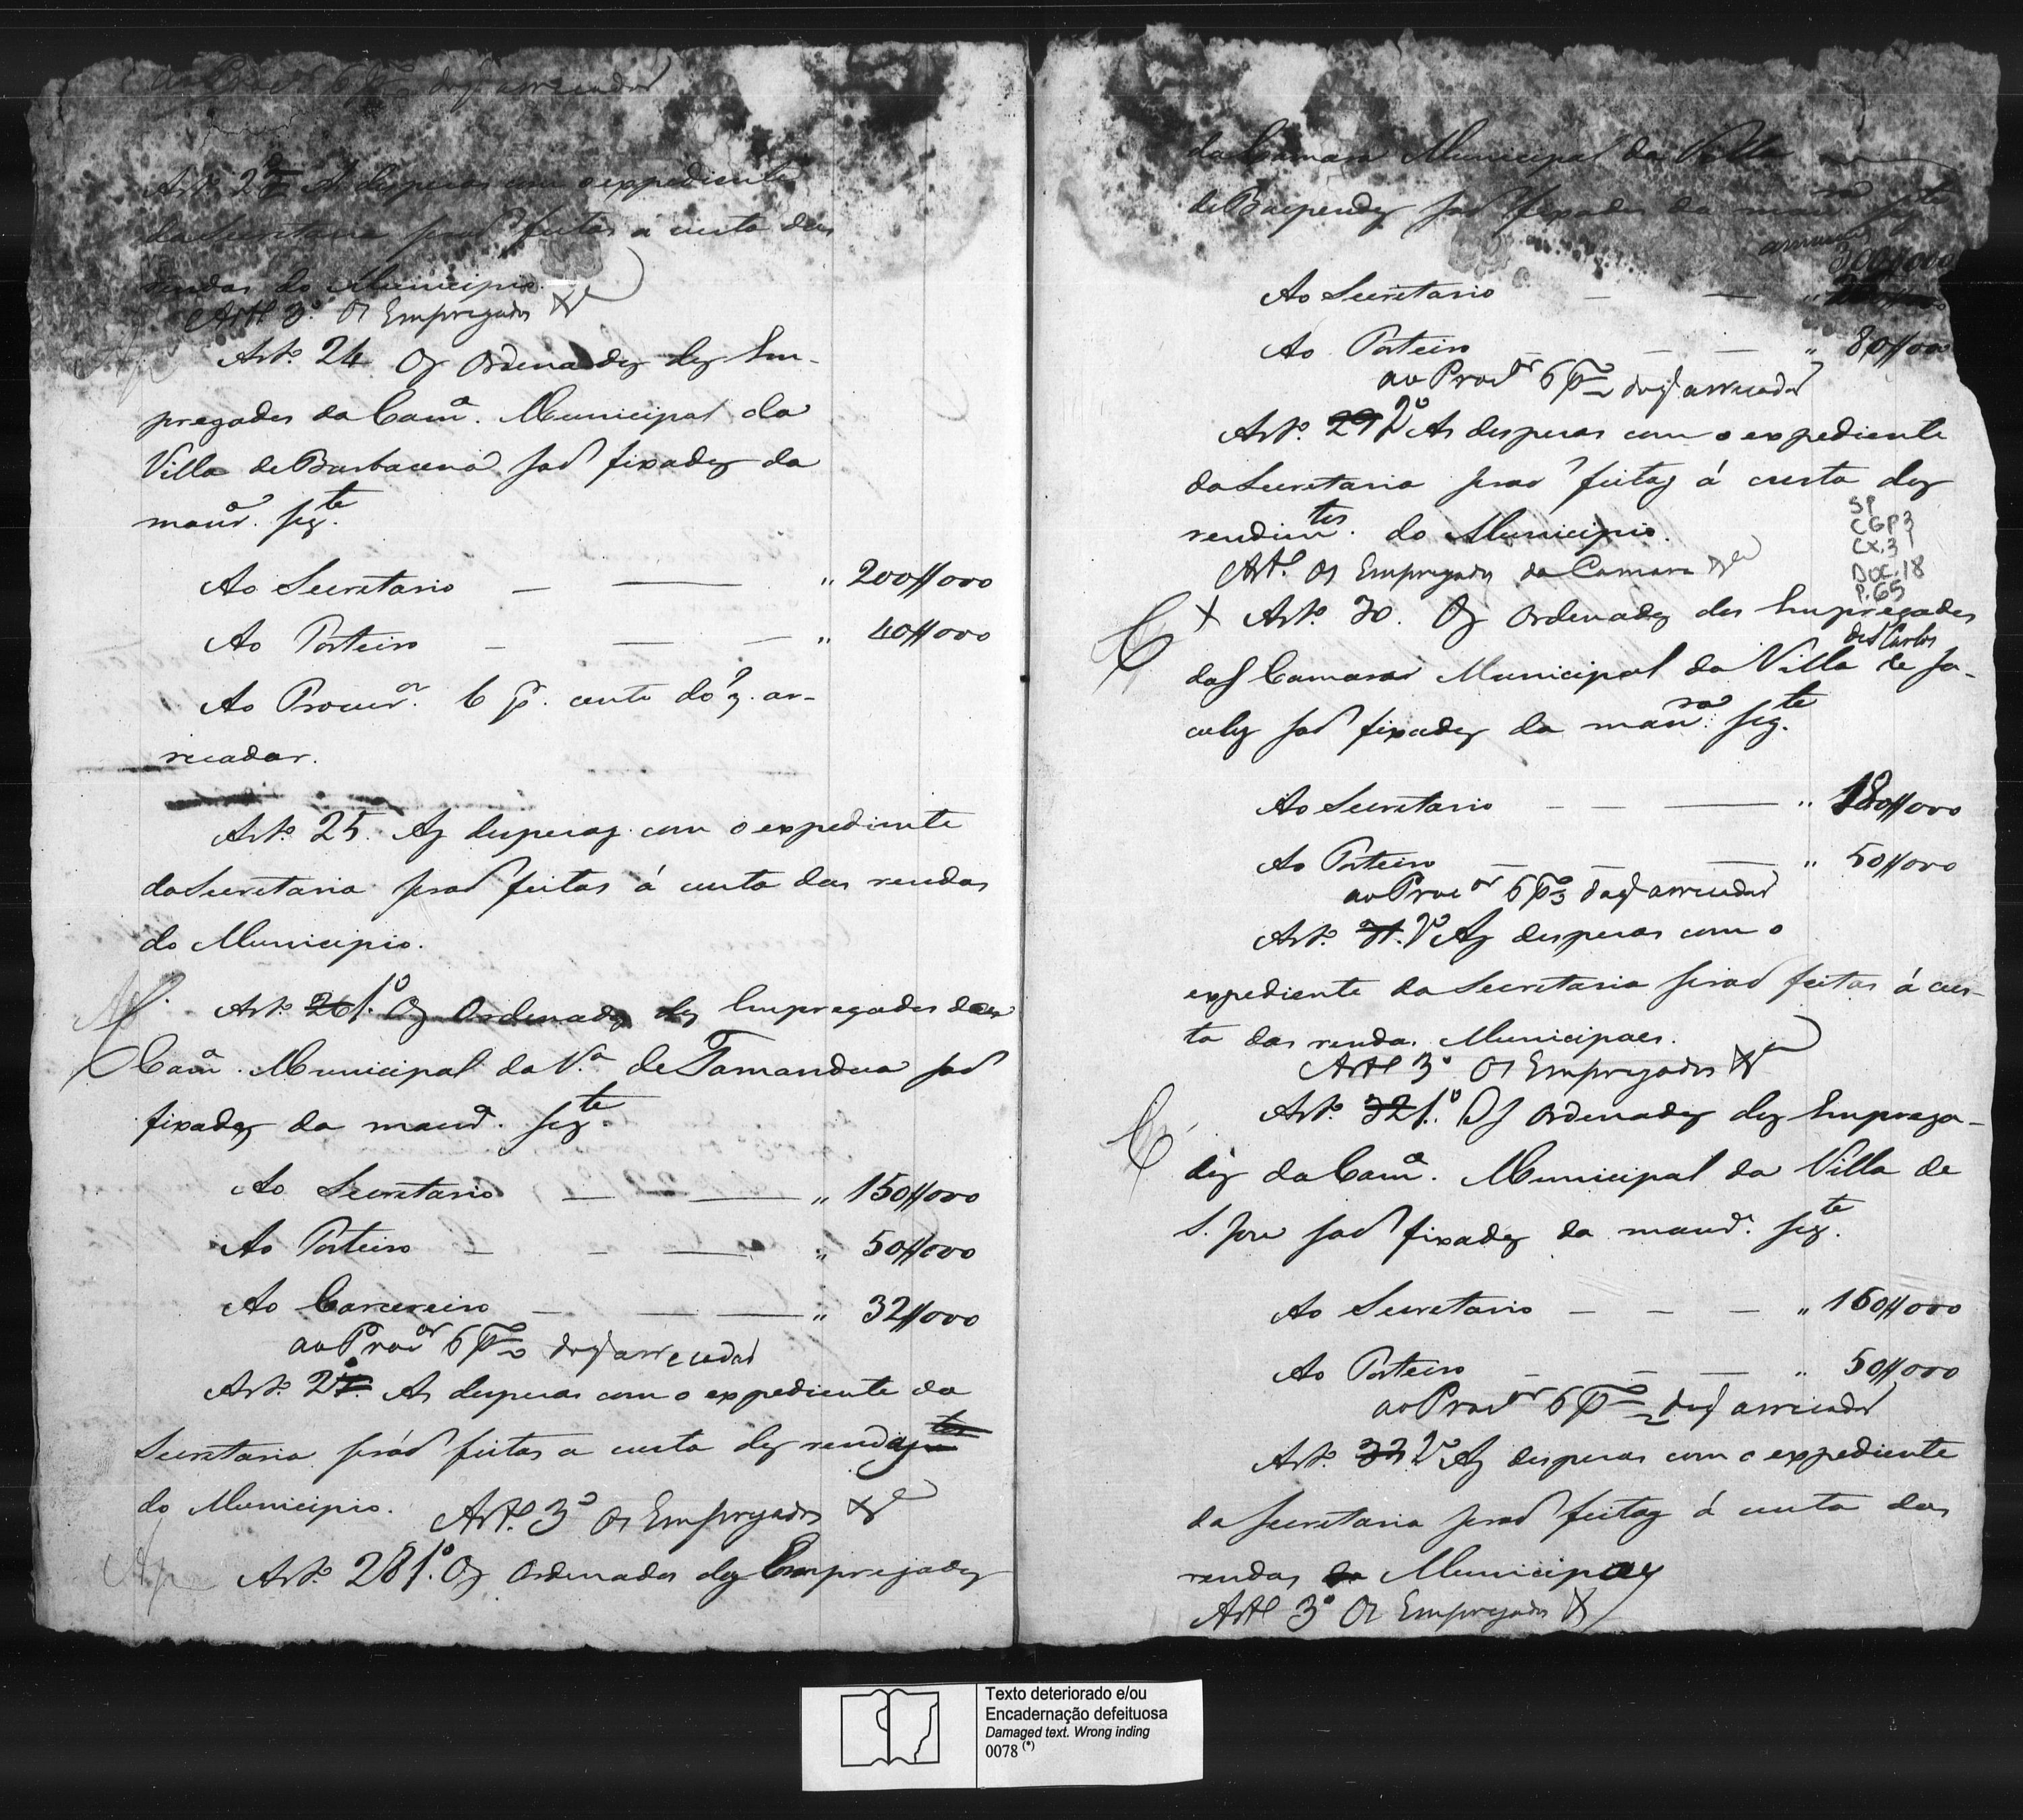 ao Procor 6 pr% do q arrecadar
Arto. 23 As despezas com o expediente
da Secretaria serão feitas a custa das
rendas do Municipio.
Artº 3º Os Empregados &a
Arto. 24 Os Ordenados dos Em-
pregados da Camª. Municipal da
Villa de Barbacena são fixados da
manrª. segte.
Ao Secretario — — " 200//000
Ao Porteiro — — — " 40//000
Ao Procurºr. 6 p. cento do q. ar-
recadar.
Arto. 25. As despezas com o expediente
da Secretaria serão feitas á custa das rendas
do Municipio.
Arto. 26 1º Os Ordenados dos Empregados da
Camª. Municipal da Vª de Tamandua são
fixados da manrª. segte.
Ao Secretario — — " 150//000
Ao Porteiro — — — " 50//000
Ao Carcereiro — — — " 32//000
ao Procor 6 p% do q arrecadar
Arto. 27. As despezas com o expediente da
Secretaria serão feitas a custa das rendas
do Municipio. Artº. 3º Os Empregados &a
Arto. 28 1º. Os Ordenados dos Empregados
da Camara Municipal da Villa
de Baependy são fixados da manrª segte
annuaes
300//000
Ao Secretario — — "
Ao Porteiro — — " 80//000
ao Procor 6 p% do q arrecadar
Arto. 29 2º As despezas com o expediente
da Secretaria serão feitas á custa dos
rendimtos. do Municipio.
Artº. Os Empregados da Camara &a
SP
CGP3
CX.3
DOC.18
P.65
X Arto. 30. Os Ordenados dos Empregados
de S Carlos
das Camara Municipal da Villa de Ja-
cuhy são fixados da manrª. segte.
Ao Secretario — — — " 180//000
Ao Porteiro — — — " 50//000
ao Procor 6 p% do q arrecadar
Arto. 31. 2º As despezas com o
expediente da Secretaria serão feitas á cus-
ta das rendas Municipaes.
Artº 3º Os Empregados &a
Arto. 32 1º. Os Ordenados dos Emprega-
dos da Camª. Municipal da Villa de
S. Joze são fixados da manrª. segte.
Ao Secretario — — — " 160//000
Ao Porteiro — — — " 50//000
ao Procor 6 p% do q arrecadar
Arto. 33 2º As despezas com o expediente
da Secretaria serão feitas á custa das
rendas do Municipaes
Artº 3º Os Empregados &
Texto deteriorado e/ou
Encadernação defeituosa
Damaged text. Wrong inding
0078 (*)